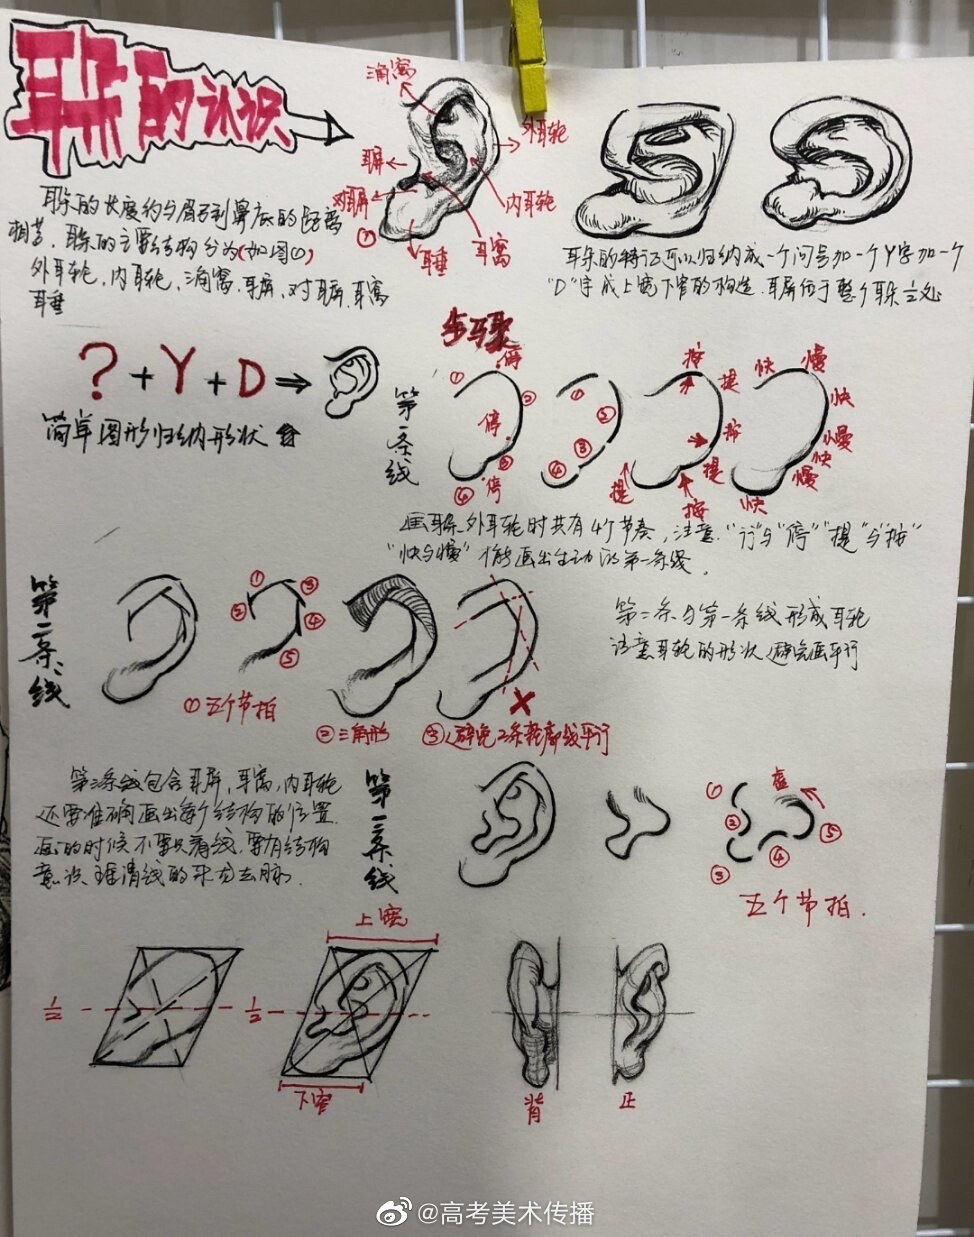 耳朵的认识
三角窝
外耳轮
耳屏
对耳屏
内耳轮
①
耳垂
耳窝
耳朵的长度约与眉弓到鼻底的距离
相等，耳朵的主要结构分为(如图①)
外耳轮，内耳轮，三角窝，耳屏，对耳屏，耳窝
耳垂
耳朵的特征可以归纳成一个问号加一个Y字加一个
"D"字成上宽下窄的构造，耳屏位于整个耳朵
? + Y + D ⇒
简单图形归纳形状
步骤
第一条线
① 停 ② 停 ③ ④ 停
① ② ③ ④
按 提 按 提 按 提
快 慢 快 慢 快 慢 快
画耳朵外耳轮时共有4个节奏，注意"行"与"停""提"与"按"
"快与慢"才能画出生动的第一条线。
第二条线
① ② ③ ④ ⑤
①五个节拍
②三角形
③避免2条轮廓线平行
第二条与第一条线形成耳轮
注意耳轮的形状，避免画平行
第三条线包含耳屏，耳窝，内耳轮
还要准确画出每个结构的位置
画的时候不要只看线，要有结构
意识，理清线的来龙去脉。
第三条线
① ② ③ ④ ⑤ 虚
五个节拍.
上宽
1/2
1/2
下窄
背
正
@高考美术传播